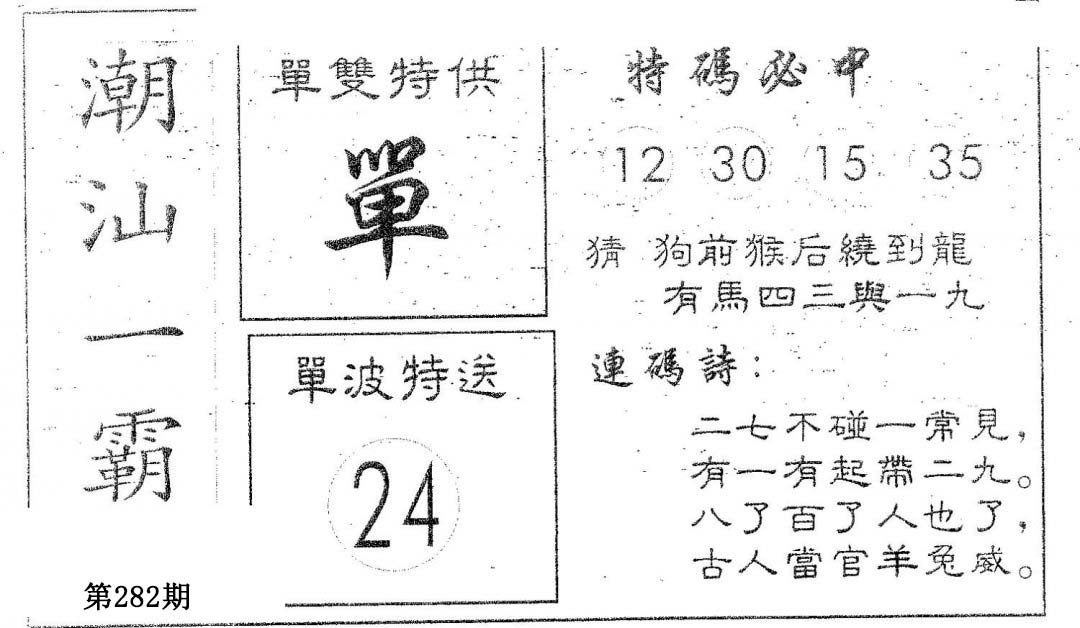 潮汕一霸
單雙特供
單
單波特送
24
特碼必中
12 30 15 35
猜 狗前猴后繞到龍
有馬四三與一九
連碼詩：
二七不碰一常見，
有一有起帶二九。
八了百了人也了，
古人當官羊兔威。
第282期